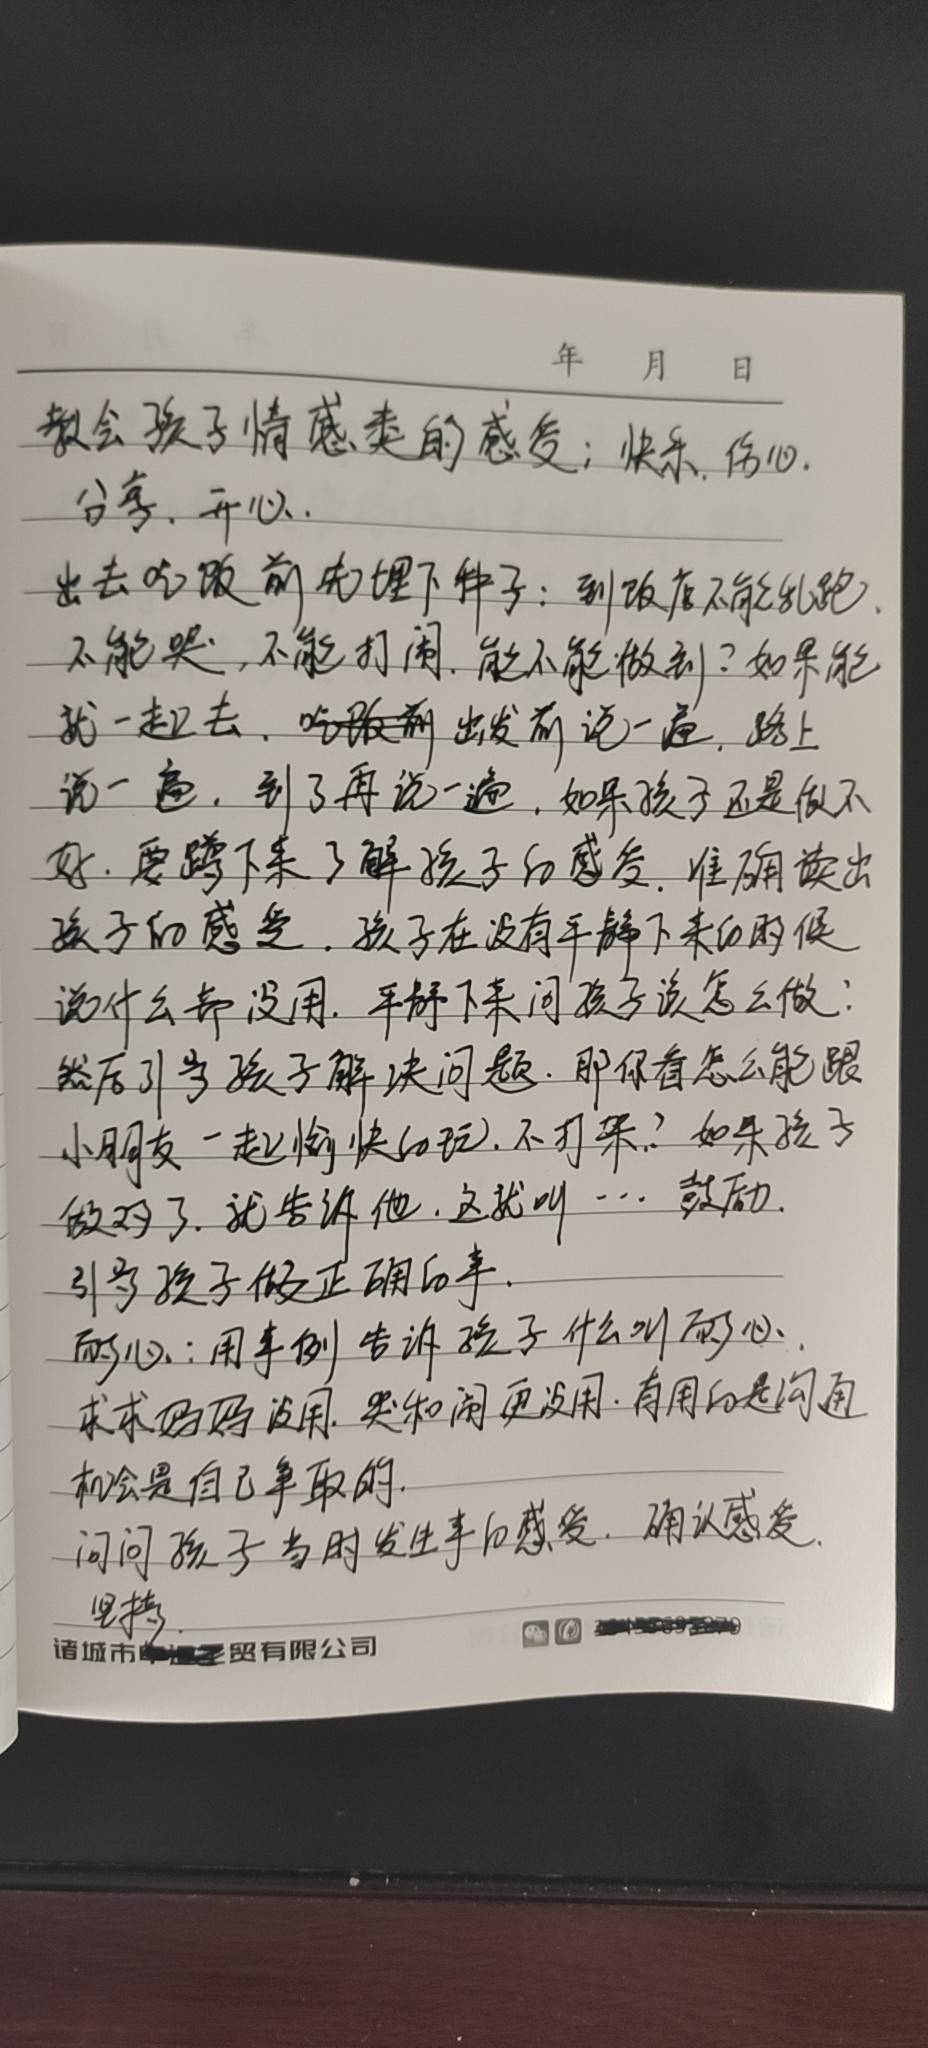 年 月 日
教会孩子情感类的感受；快乐、伤心、
分享、开心、
出去吃饭前先埋下种子：到饭店不能乱跑、
不能哭，不能打闹、能不能做到？如果能
就一起去、吃饭前出发前说一遍、路上
说一遍，到了再说一遍，如果孩子还是做不
好、要蹲下来了解孩子的感受、准确读出
孩子的感受、孩子在没有平静下来的时候
说什么都没用、平静下来问孩子该怎么做：
然后引导孩子解决问题、那你看怎么能跟
小朋友一起愉快的玩、不打架？如果孩子
做对了、就告诉他、这就叫…鼓励、
引导孩子做正确的事、
耐心：用事例告诉孩子什么叫耐心、
求求妈妈没用、哭和闹更没用、有用的是沟通
机会是自己争取的、
问问孩子当时发生事的感受、确认感受、
坚持、
诸城市 贸有限公司